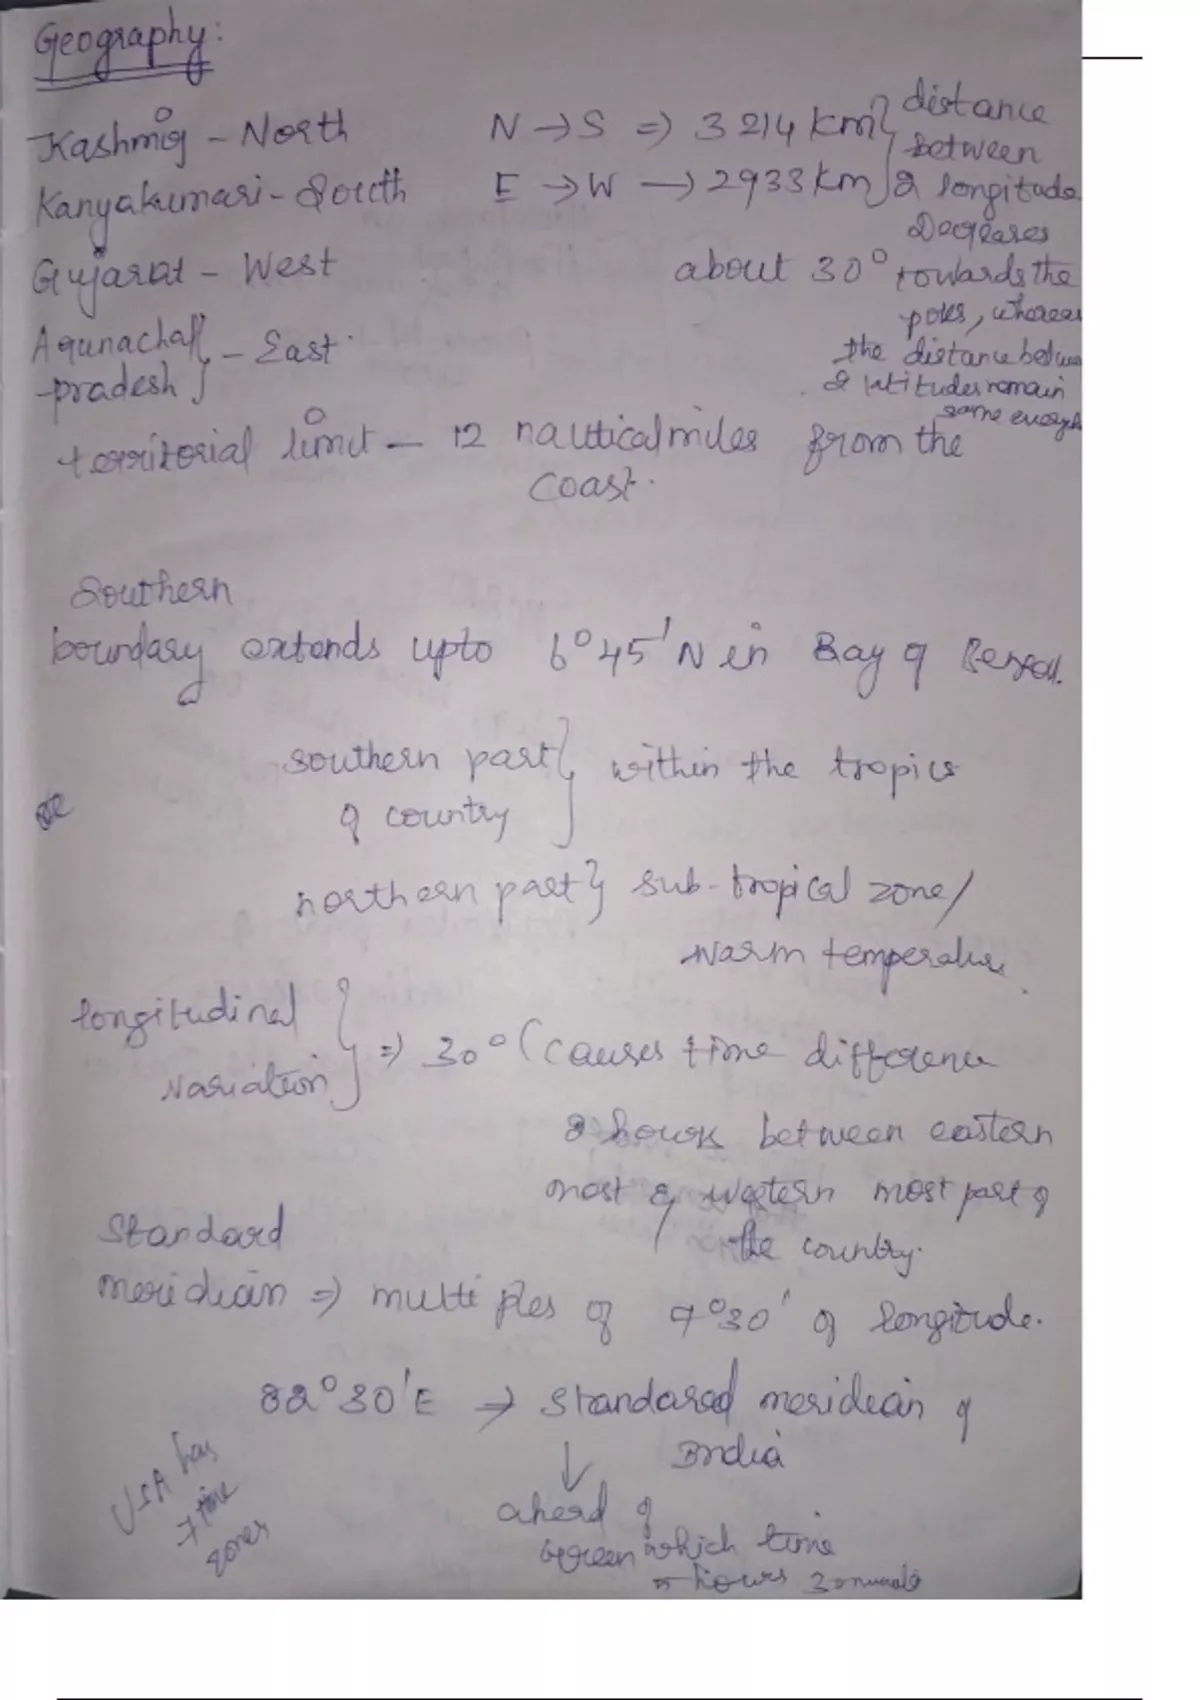 Geography:
Kashmir - North
N → S ⇒ 3214 km
Kanyakumari - South
E → W → 2933 km
distance
between
2 longitude
Decreases
Gujarat - West
about 30°
towards the
poles, whereas
the distance between
2 latitudes remain
same enough
Arunachal
pradesh } - East
territorial limit - 12 nautical miles from the
coast.
Southern
boundary extends upto 6°45'N in Bay of Bengal.
southern part
of country } within the tropics
northern part } sub-tropical zone/
warm temperature
longitudinal
variation } ⇒ 30° (causes time difference
2 hours between eastern
most & western most part of
the country.
Standard
meridian ⇒ multiples of 7°30' of longitude.
82°30'E → standard meridian of
India
↓
ahead of
Green which time
5 hours 30 minutes
USA has
7 time
zones